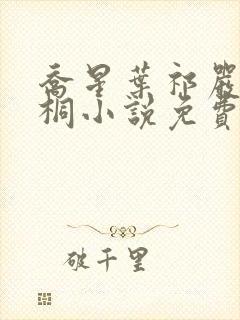 喬星葉祁嚴
桐小說免費
破千里